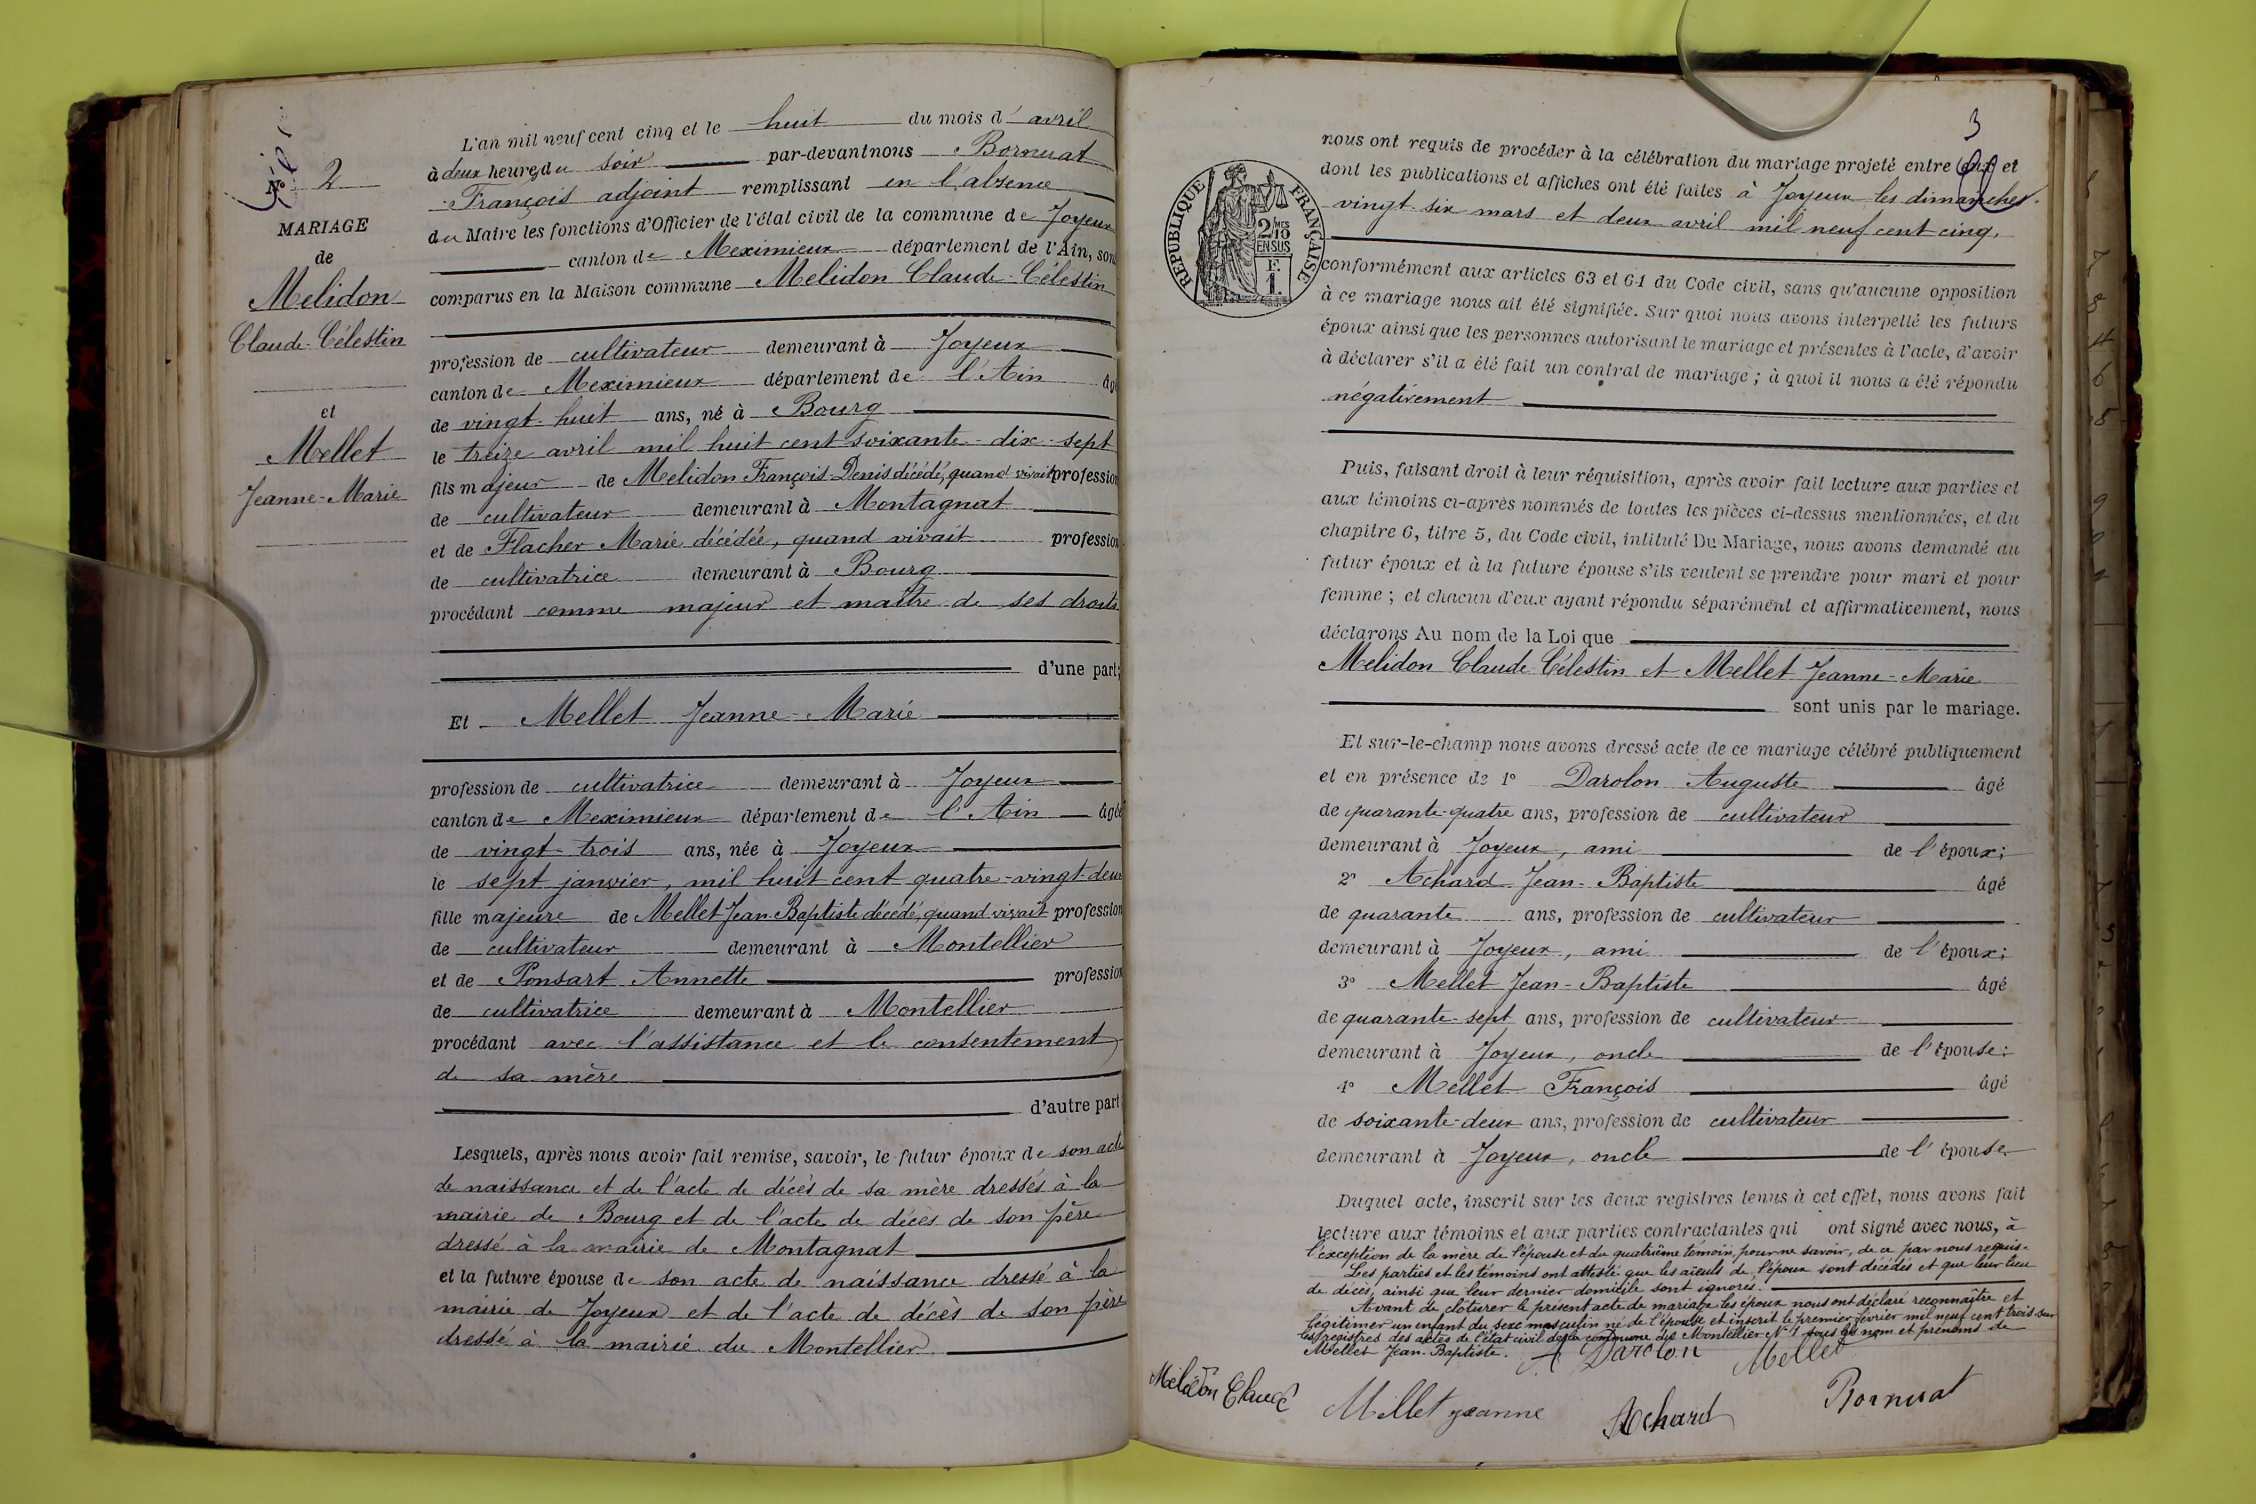 N° 2
MARIAGE
de
Melidon
Claude-Célestin
et
Mellet
Jeanne-Marie
L'an mil neuf cent cinq et le huit du mois d'avril
à deux heures du soir par-devant nous Bornuat
François adjoint remplissant en l'absence
du Maire les fonctions d'Officier de l'état civil de la commune de Joyeux
canton de Meximieux département de l'Ain, sont
comparus en la Maison commune Melidon Claude-Célestin
profession de cultivateur demeurant à Joyeux
canton de Meximieux département de l'Ain âgé
de vingt-huit ans, né à Bourg
le treize avril mil huit cent soixante-dix-sept
fils majeur de Melidon François-Denis décédé, quand vivait profession
de cultivateur demeurant à Montagnat
et de Flacher Marie décédée, quand vivait profession
de cultivatrice demeurant à Bourg
procédant comme majeur et maître de ses droits
d'une part;
Et Mellet Jeanne-Marie
profession de cultivatrice demeurant à Joyeux
canton de Meximieux département de l'Ain âgée
de vingt-trois ans, née à Joyeux
le sept janvier, mil huit cent quatre-vingt-deux
fille majeure de Mellet Jean-Baptiste décédé, quand vivait profession
de cultivateur demeurant à Montellier
et de Ponsart Annette profession
de cultivatrice demeurant à Montellier
procédant avec l'assistance et le consentement
de sa mère
d'autre part
Lesquels, après nous avoir fait remise, savoir, le futur époux de son acte
de naissance et de l'acte de décès de sa mère dressés à la
mairie de Bourg et de l'acte de décès de son père
dressé à la mairie de Montagnat
et la future épouse de son acte de naissance dressé à la
mairie de Joyeux et de l'acte de décès de son père
dressé à la mairie du Montellier
3
RÉPUBLIQUE FRANÇAISE
2/10 MES
EN SUS
F.
1.
nous ont requis de procéder à la célébration du mariage projeté entre eux et
dont les publications et affiches ont été faites à Joyeux les dimanches
vingt-six mars et deux avril mil neuf cent cinq,
conformément aux articles 63 et 64 du Code civil, sans qu'aucune opposition
à ce mariage nous ait été signifiée. Sur quoi nous avons interpellé les futurs
époux ainsi que les personnes autorisant le mariage et présentes à l'acte, d'avoir
à déclarer s'il a été fait un contrat de mariage; à quoi il nous a été répondu
négativement
Puis, faisant droit à leur réquisition, après avoir fait lecture aux parties et
aux témoins ci-après nommés de toutes les pièces ci-dessus mentionnées, et du
chapitre 6, titre 5, du Code civil, intitulé Du Mariage, nous avons demandé au
futur époux et à la future épouse s'ils veulent se prendre pour mari et pour
femme; et chacun d'eux ayant répondu séparément et affirmativement, nous
déclarons Au nom de la Loi que
Melidon Claude-Célestin et Mellet Jeanne-Marie
sont unis par le mariage.
Et sur-le-champ nous avons dressé acte de ce mariage célébré publiquement
et en présence de 1° Darolon Auguste âgé
de quarante-quatre ans, profession de cultivateur
demeurant à Joyeux, ami de l'époux;
2° Achard Jean-Baptiste âgé
de quarante ans, profession de cultivateur
demeurant à Joyeux, ami de l'époux;
3° Mellet Jean-Baptiste âgé
de quarante-sept ans, profession de cultivateur
demeurant à Joyeux, oncle de l'épouse;
4° Mellet François âgé
de soixante-deux ans, profession de cultivateur
demeurant à Joyeux, oncle de l'épouse
Duquel acte, inscrit sur les deux registres tenus à cet effet, nous avons fait
lecture aux témoins et aux parties contractantes qui ont signé avec nous, à
l'exception de la mère de l'épouse et du quatrième témoin, pour ne savoir, de ce par nous requis.
Les parties et les témoins ont attesté que les aïeuls de l'époux sont décédés et que leur lieu
de décès, ainsi que leur dernier domicile sont ignorés.
Avant de clôturer le présent acte de mariage les époux nous ont déclaré reconnaître et
légitimer un enfant du sexe masculin né de l'épouse et inscrit le premier février mil neuf cent trois sur
les registres des actes de l'état civil de la commune de Montellier N° 1 sous les nom et prénoms de
Mellet Jean-Baptiste.
A Darolon Mellet
Melidon Claude
Mellet jeanne Achard Bornuat